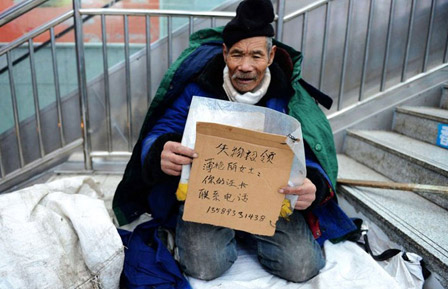 失物招领
薄艳丽女士:
你的证书
联系电话
13589531438